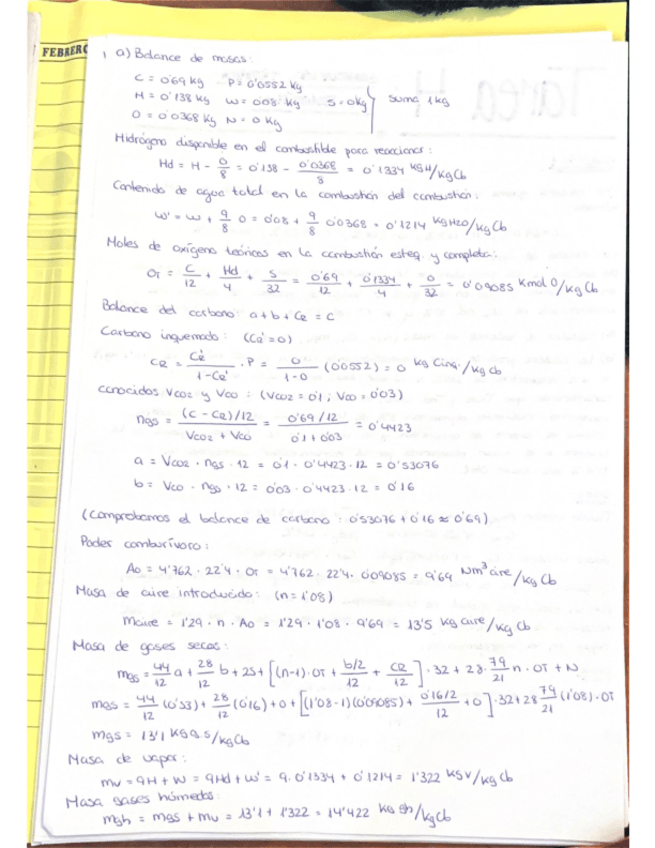 FEBRERO
1 a) Balance de masas:
C = 0'69 Kg P = 0'0552 Kg
H = 0'138 Kg W = 0'08 Kg S = 0 Kg } suma 1 kg
O = 0'0368 Kg N = 0 Kg
Hidrógeno disponible en el combustible para reaccionar:
Hd = H - O/8 = 0'138 - 0'0368/8 = 0'1334 KgH/KgCb
Contenido de agua total en la combustión del combustión:
W' = W + 9/8 O = 0'08 + 9/8 0'0368 = 0'1214 KgH2O/KgCb
Moles de oxígeno teóricos en la combustión esteq. y completa:
OT = C/12 + Hd/4 + S/32 = 0'69/12 + 0'1334/4 + 0/32 = 0'09085 Kmol O/Kg Cb
Balance del carbono: a + b + CR = C
Carbono inquemado: (CR' = 0)
CR = CR'/1-CR' · P = 0/1-0 (0'0552) = 0 kg Cinq./kg Cb
conocidos VCO2 y VCO : (VCO2 = 0'1 ; VCO = 0'03)
ngs = (C - CR)/12 / VCO2 + VCO = 0'69/12 / 0'1 + 0'03 = 0'4423
a = VCO2 · ngs · 12 = 0'1 · 0'4423 · 12 = 0'53076
b = VCO · ngs · 12 = 0'03 · 0'4423 · 12 = 0'16
(Comprobamos el balance de carbono : 0'53076 + 0'16 ≈ 0'69)
Poder comburívoro:
Ao = 4'762 · 22'4 · OT = 4'762 · 22'4 · 0'09085 = 9'69 Nm³ aire/kg Cb
Masa de aire introducido: (n = 1'08)
Maire = 1'29 · n · Ao = 1'29 · 1'08 · 9'69 = 13'5 kg aire/kg Cb
Masa de gases secos:
mgs = 44/12 a + 28/12 b + 2S + [(n-1)·OT + b/2/12 + CR/12] · 32 + 28 · 79/21 n · OT + N
mgs = 44/12 (0'53) + 28/12 (0'16) + 0 + [(1'08-1)(0'09085) + 0'16/2/12 + 0] · 32 + 28 79/21 (1'08) · OT
mgs = 13'1 KgG.s/kgCb
Masa de vapor:
mv = 9H + W = 9Hd + W' = 9 · 0'1334 + 0'1214 = 1'322 KgV/kg Cb
Masa gases húmedos:
mgh = mgs + mv = 13'1 + 1'322 = 14'422 kg gh/kgCb